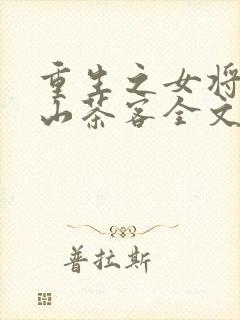 重生之女将
山茶客全文
普拉斯